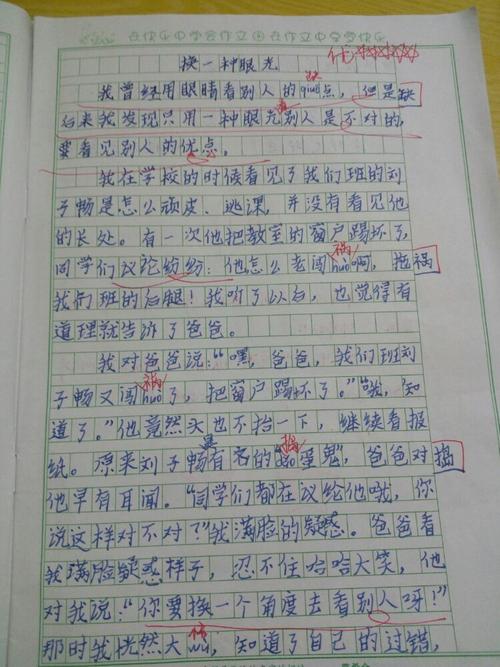 在快乐中学会作文 在作文中享受快乐
优☆☆☆☆☆
换一种眼光
缺
我曾经用眼睛看别人的quē点,但是缺
后来我发现只用一种眼光别人是不对的,
看
要看见别人的优点。
我在学校的时候看见了我们班的刘
子畅是怎么顽皮、逃课,并没有看见他
的长处。有一次他把教室的窗户踢坏了,
祸
同学们议论纷纷:他怎么老闯huò啊,拖祸
我们班的后腿!我听了以后,也觉得有
道理就告诉了爸爸。
我对爸爸说:“嘿,爸爸,我们班刘
祸
子畅又闯huò了,把窗户踢坏了。”“哦,知
道了。”他竟然头也不抬一下,继续看报
是 捣
纸。原来刘子畅有名的“dǎo蛋鬼”,爸爸对捣
他早有耳闻。“同学们都在议给他哦,你
说这样对不对?”我满脸的疑惑。爸爸看
我满脸疑惑样子,忍不住哈哈大笑,他
对我说:“你要换一个角度去看别人呀!”
悟
那时我恍然大wù,知道了自己的过错,